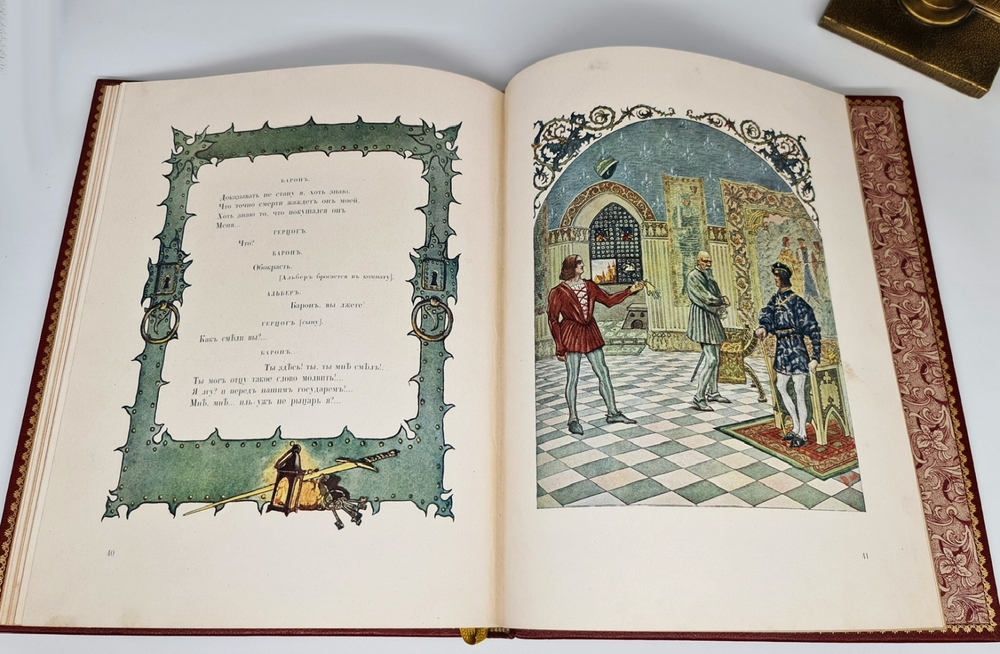 БАРОНЪ.
Доказывать не стану я, хоть знаю,
Что точно смерти жаждетъ онъ моей,
Хоть знаю то, что покушался онъ
Меня...
ГЕРЦОГЪ.
Что?
БАРОНЪ.
Обокрасть.
[Альберъ бросается въ комнату].
АЛЬБЕРЪ.
Баронъ, вы лжете!
ГЕРЦОГЪ [сыну].
Какъ смѣли вы?...
БАРОНЪ.
Ты здѣсь! ты, ты мнѣ смѣлъ!..
Ты могъ отцу такое слово молвить!...
Я лгу! и передъ нашимъ государемъ!...
Мнѣ, мнѣ... иль ужъ не рыцарь я?...
40
41